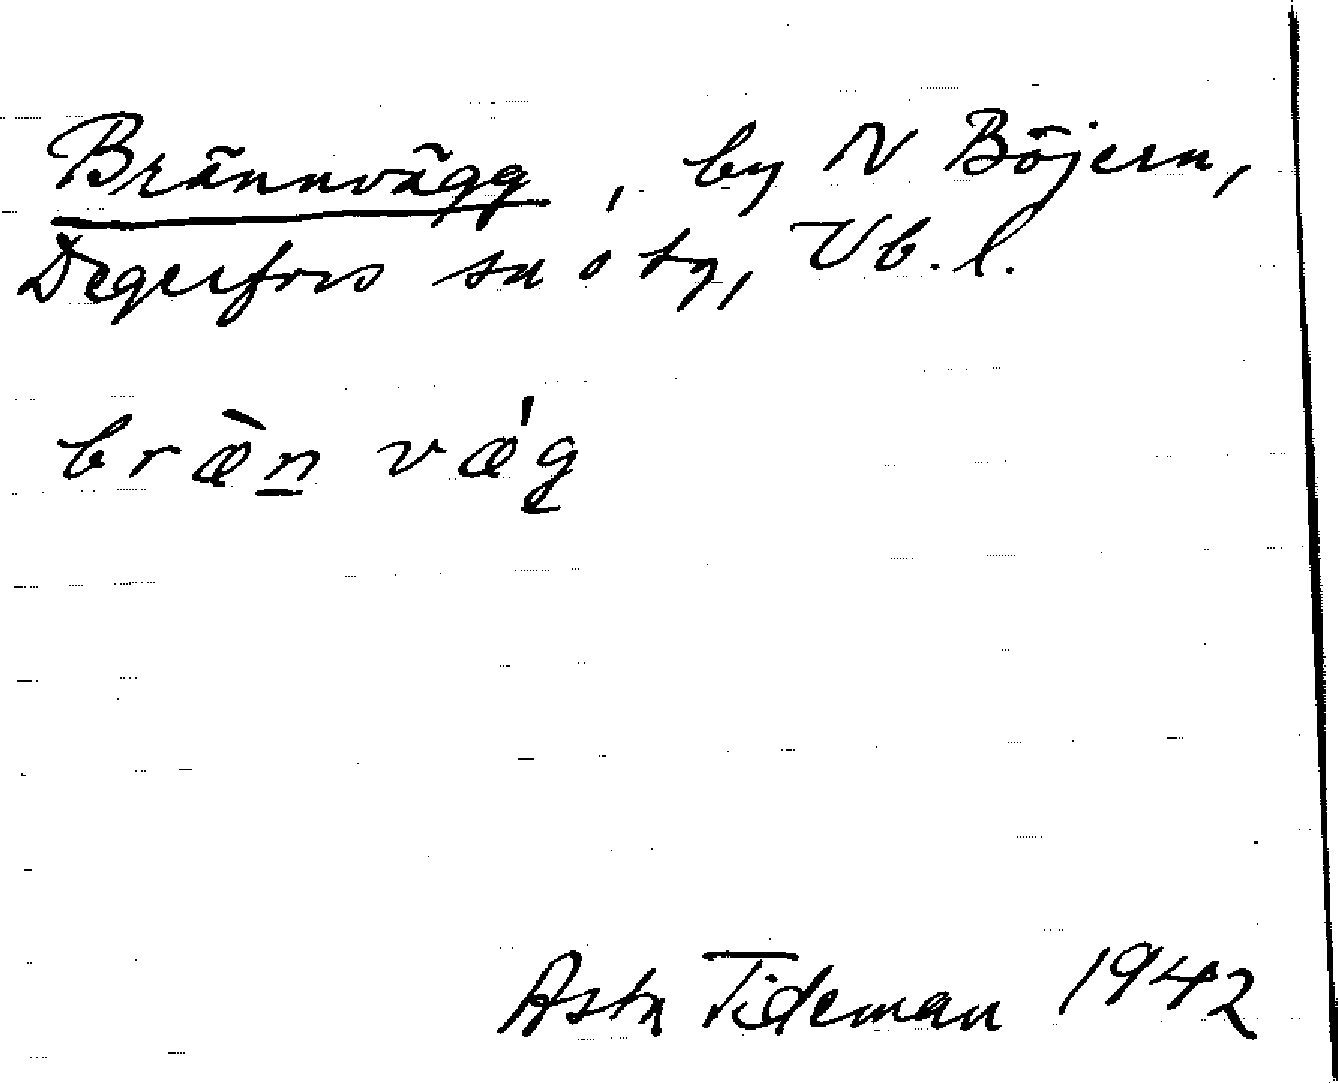 Brännvägg, by N Böjern,
Degerfors sn o tg, Vb. l.
bræ̀n̲ væ̍g̲
Asta Tideman 1942